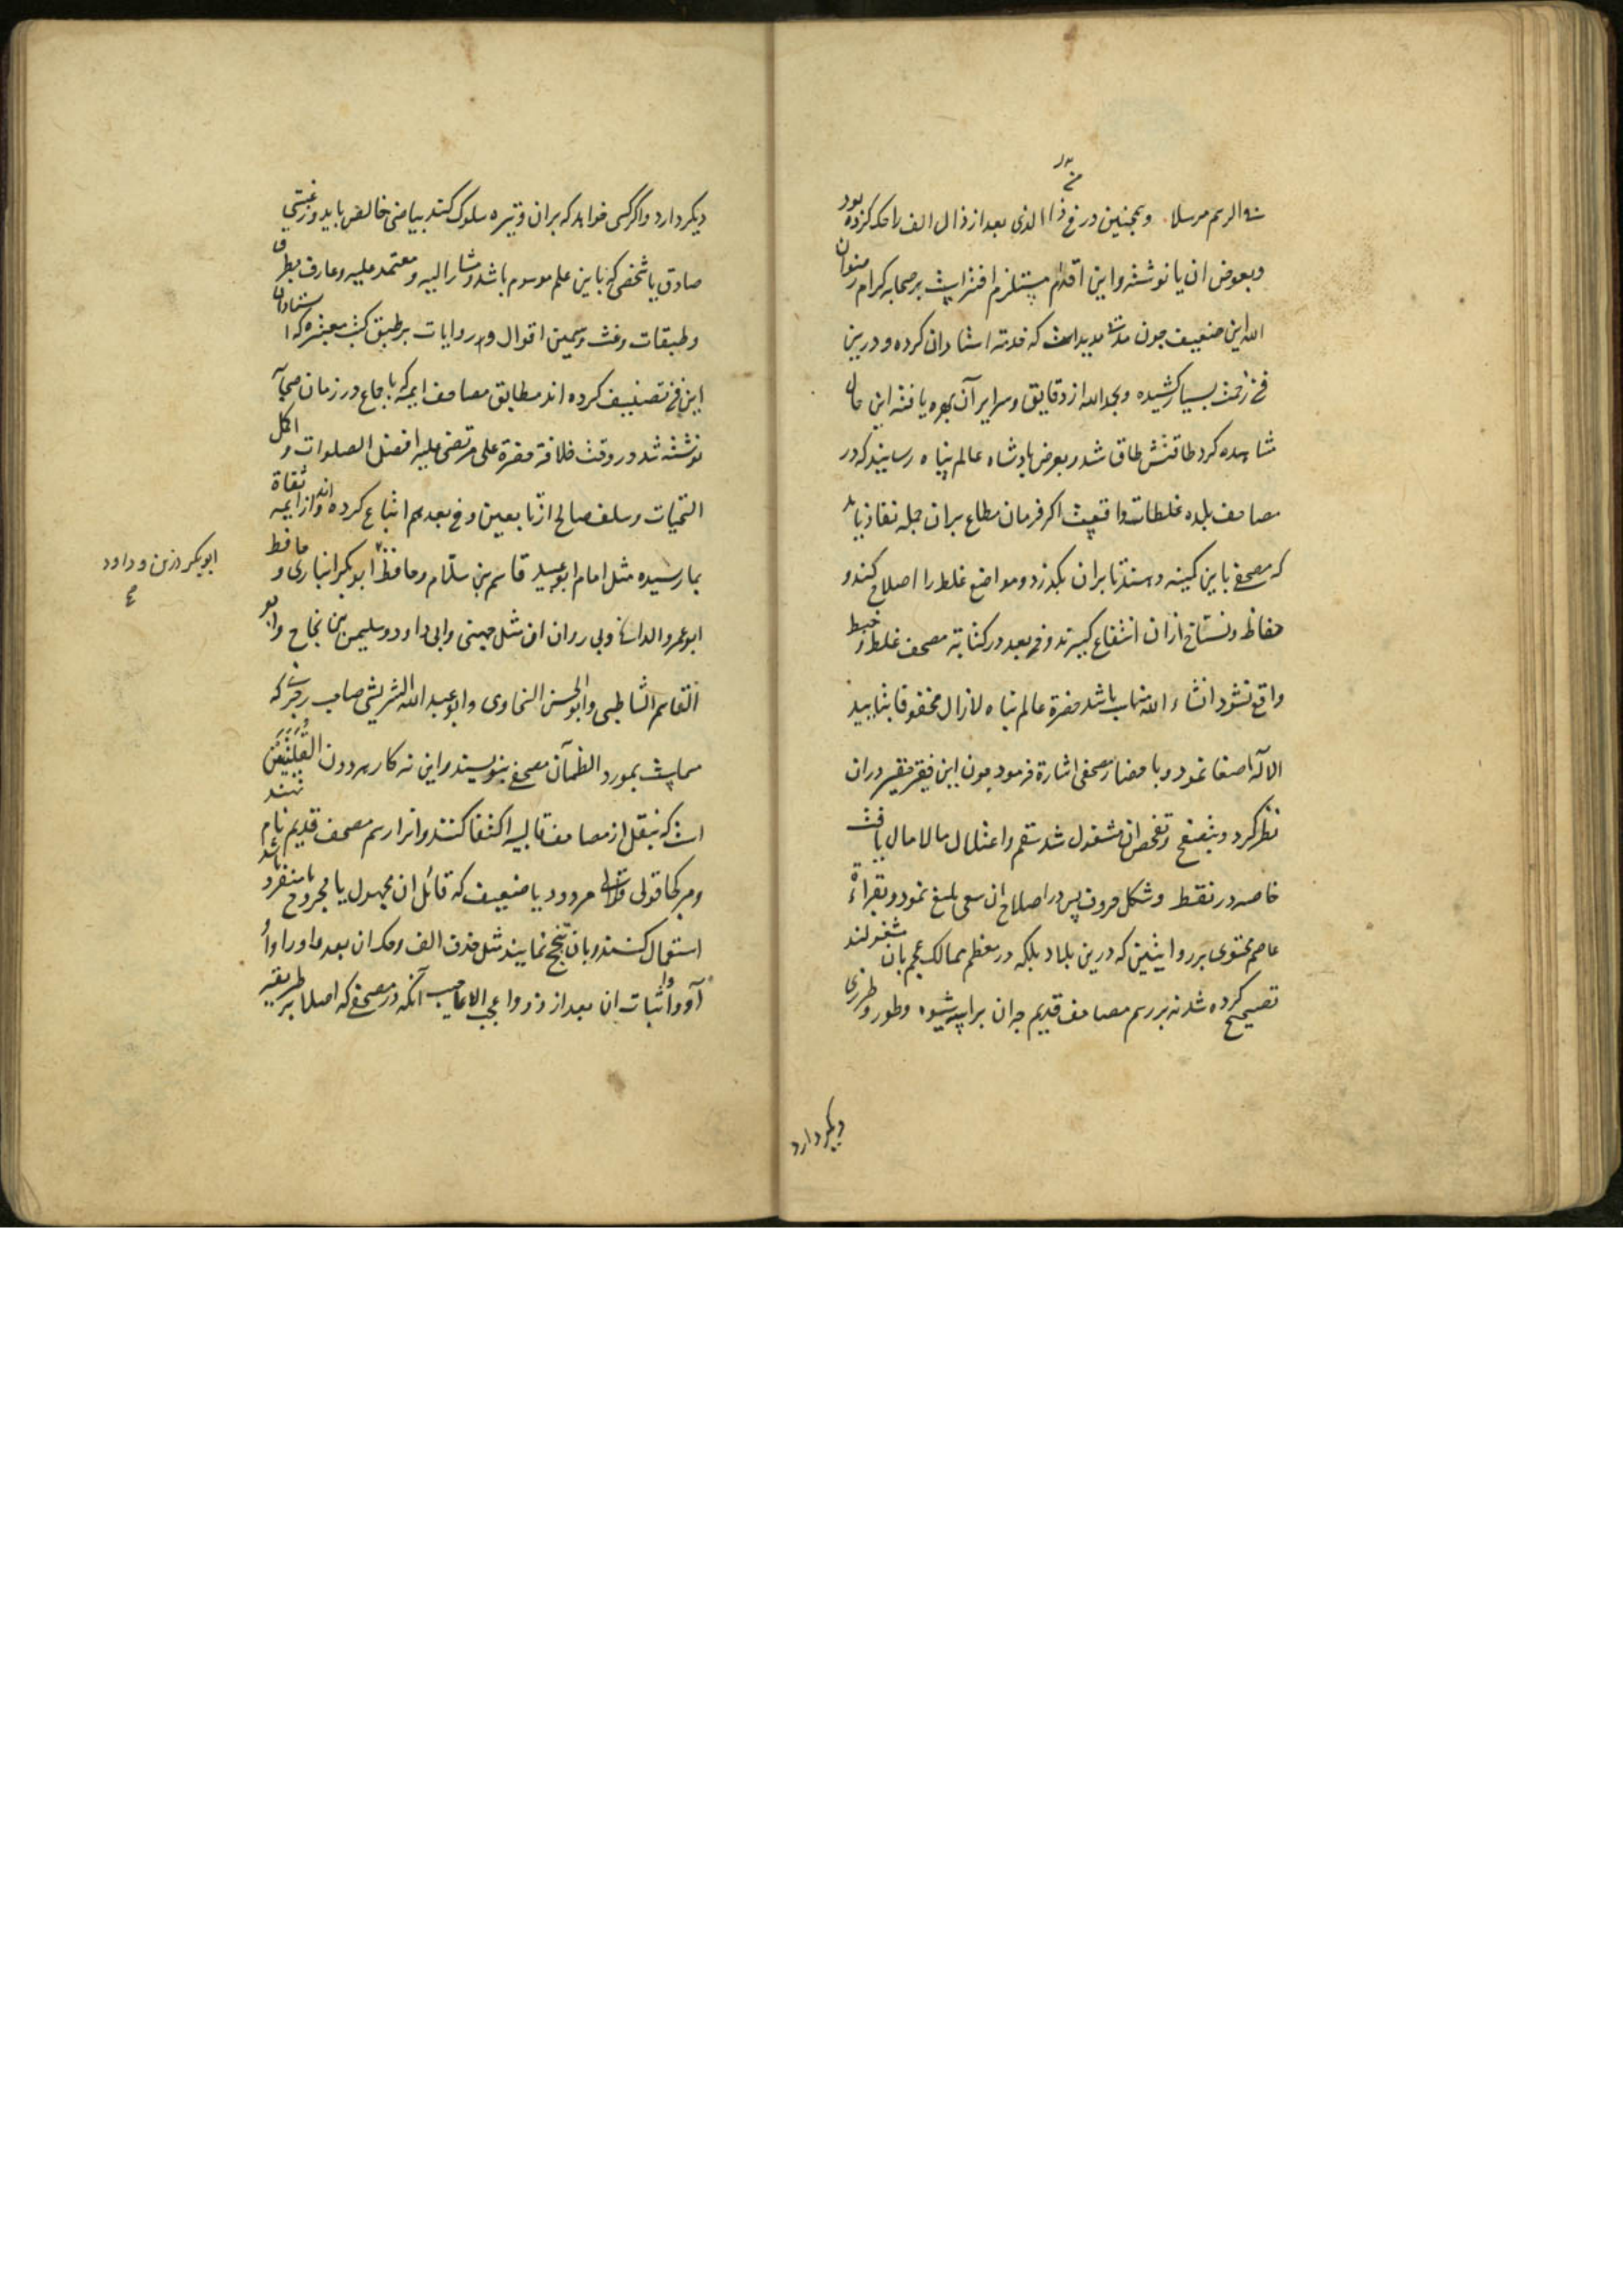 الرسم مرسلا و همچنین در ذا الذی بعد از ذال الف را حک کرده بود
و بعوض ان یا نوشته و این اقدام مستلزم افترایست بر صحابه کرام رضوان
الله این ضعیف چون مدت مدید است که خدمة استادان کرده و درین
فن زحمت بسیار کشیده و بحمد الله از دقایق و سرایر آن بهره یافته این حال
مشاهده کرد طاقتش طاق شد و بعرض پادشاه عالم پناه رسانید که در
مصاحف بلده غلطات واقعیست اکر فرمان مطاع بران جمله نفاذ یابد
که مصحفی باین کمینه دهند تا بران بکذرد و مواضع غلط را اصلاح کند و
حفاظ و نساخ ازان انتفاع کیرند و من بعد در کتابة مصحف غلط و خبط
واقع نشود انشاء الله مثاب باشد حضرة عالم پناه لازال محفوفا بتایید
الاله اصغا نمود و باحضار مصحفی اشارة فرمود چون این فقیر حقیر دران
نظر کرد و بتصفح و تفحص ان مشغول شد سقم و اعتلال مالامال یافت
خاصه در نقط و شکل حروف پس در اصلاح ان سعی بلیغ نمود و بقراءة
عاصم محتوی بر روایتین که درین بلاد بلکه در معظم ممالک عجم بان مشغولند
تصحیح کرده شد نه بر رسم مصاحف قدیم چه ان براسه شیوه و طور و طرزی
دیکر دارد
دیکر دارد و اکر کسی خواهد که بران وتیره سلوک کند بیاضی خالص باید و رغبتی
صادق با شخصی که باین علم موسوم باشد و مشار الیه و معتمد علیه و عارف بطرق
و طبقات و غث و سمین اقوال و روایات بر طبق کتب معتبره که استادان
این فن تصنیف کرده اند مطابق مصاحف ایمه که باجماع در زمان صحابه
نوشته شد در وقت خلافة حضرة علی مرتضی علیه افضل الصلوات و اکمل
التحیات و سلف صالح از تابعین و من بعدهم اتباع کرده اند و از ایمه ثقاة
بما رسیده مثل امام ابو عبید قاسم بن سلام و حافظ ابوبکر انباری و حافظ
ابو عمرو الدانی و بی روان ان مثل جهنی و ابی داود و سلیمن بن نجاح و ابو
القاسم الشاطبی و ابو الحسن السخاوی و ابو عبد الله الشریشی صاحب رجزی که
مسماست بمورد الظمآن مصحفی بنویسند و این نه کار هر دون
است که بنقل از مصاحف قالبیه اکتفا کنند و انرا رسم مصحف قدیم نام نهند
و هر کجا قولی مردود یا ضعیف که قائل ان مجهول یا مجروح یا منفرد باشد
استعمال کنند و بان تبجح نمایند مثل حذف الف و حک ان بعد واو
و اثبات ان بعد از ذو و اعجب الاعاجیب آنکه در مصحفی که اصلا بر طریقه